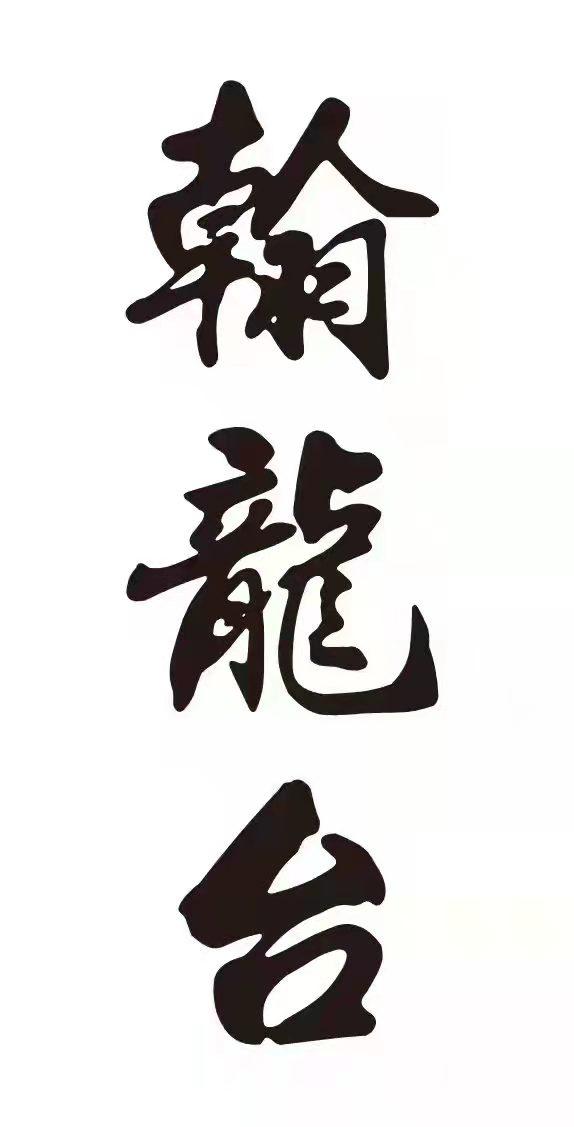 翰龍台